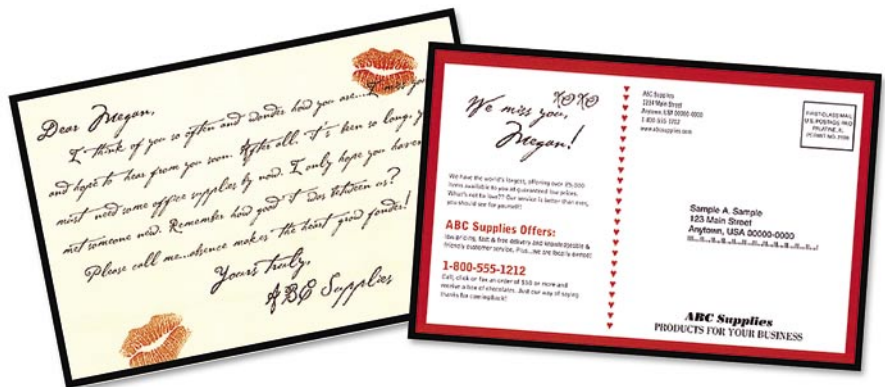 Dear Megan,
I think of you so often and wonder how you are...I miss you
and hope to hear from you soon. After all, it's been so long, y
must need some office supplies by now. I only hope you haven
met someone new. Remember how good it was between us?
Please call me...absence makes the heart grow fonder!
Yours truly,
ABC Supplies
XOXO
We miss you,
Megan!
We have the world's largest, offering over 25,000
items available to you at guaranteed low prices.
What's not to love?? Our service is better than ever,
you should see for yourself!
ABC Supplies Offers:
low pricing, fast & free delivery and knowledgeable &
friendly customer service. Plus...we are locally owned!
1-800-555-1212
Call, click or fax an order of $50 or more and
receive a box of chocolates. Just our way of saying
thanks for coming back!
ABC Supplies
1234 Main Street
Anytown, USA 00000-0000
1-800-555-1212
www.abcsupplies.com
FIRST-CLASS MAIL
U.S. POSTAGE PAID
PALATINE, IL
PERMIT NO.
Sample A. Sample
123 Main Street
Anytown, USA 00000-0000
ABC Supplies
PRODUCTS FOR YOUR BUSINESS